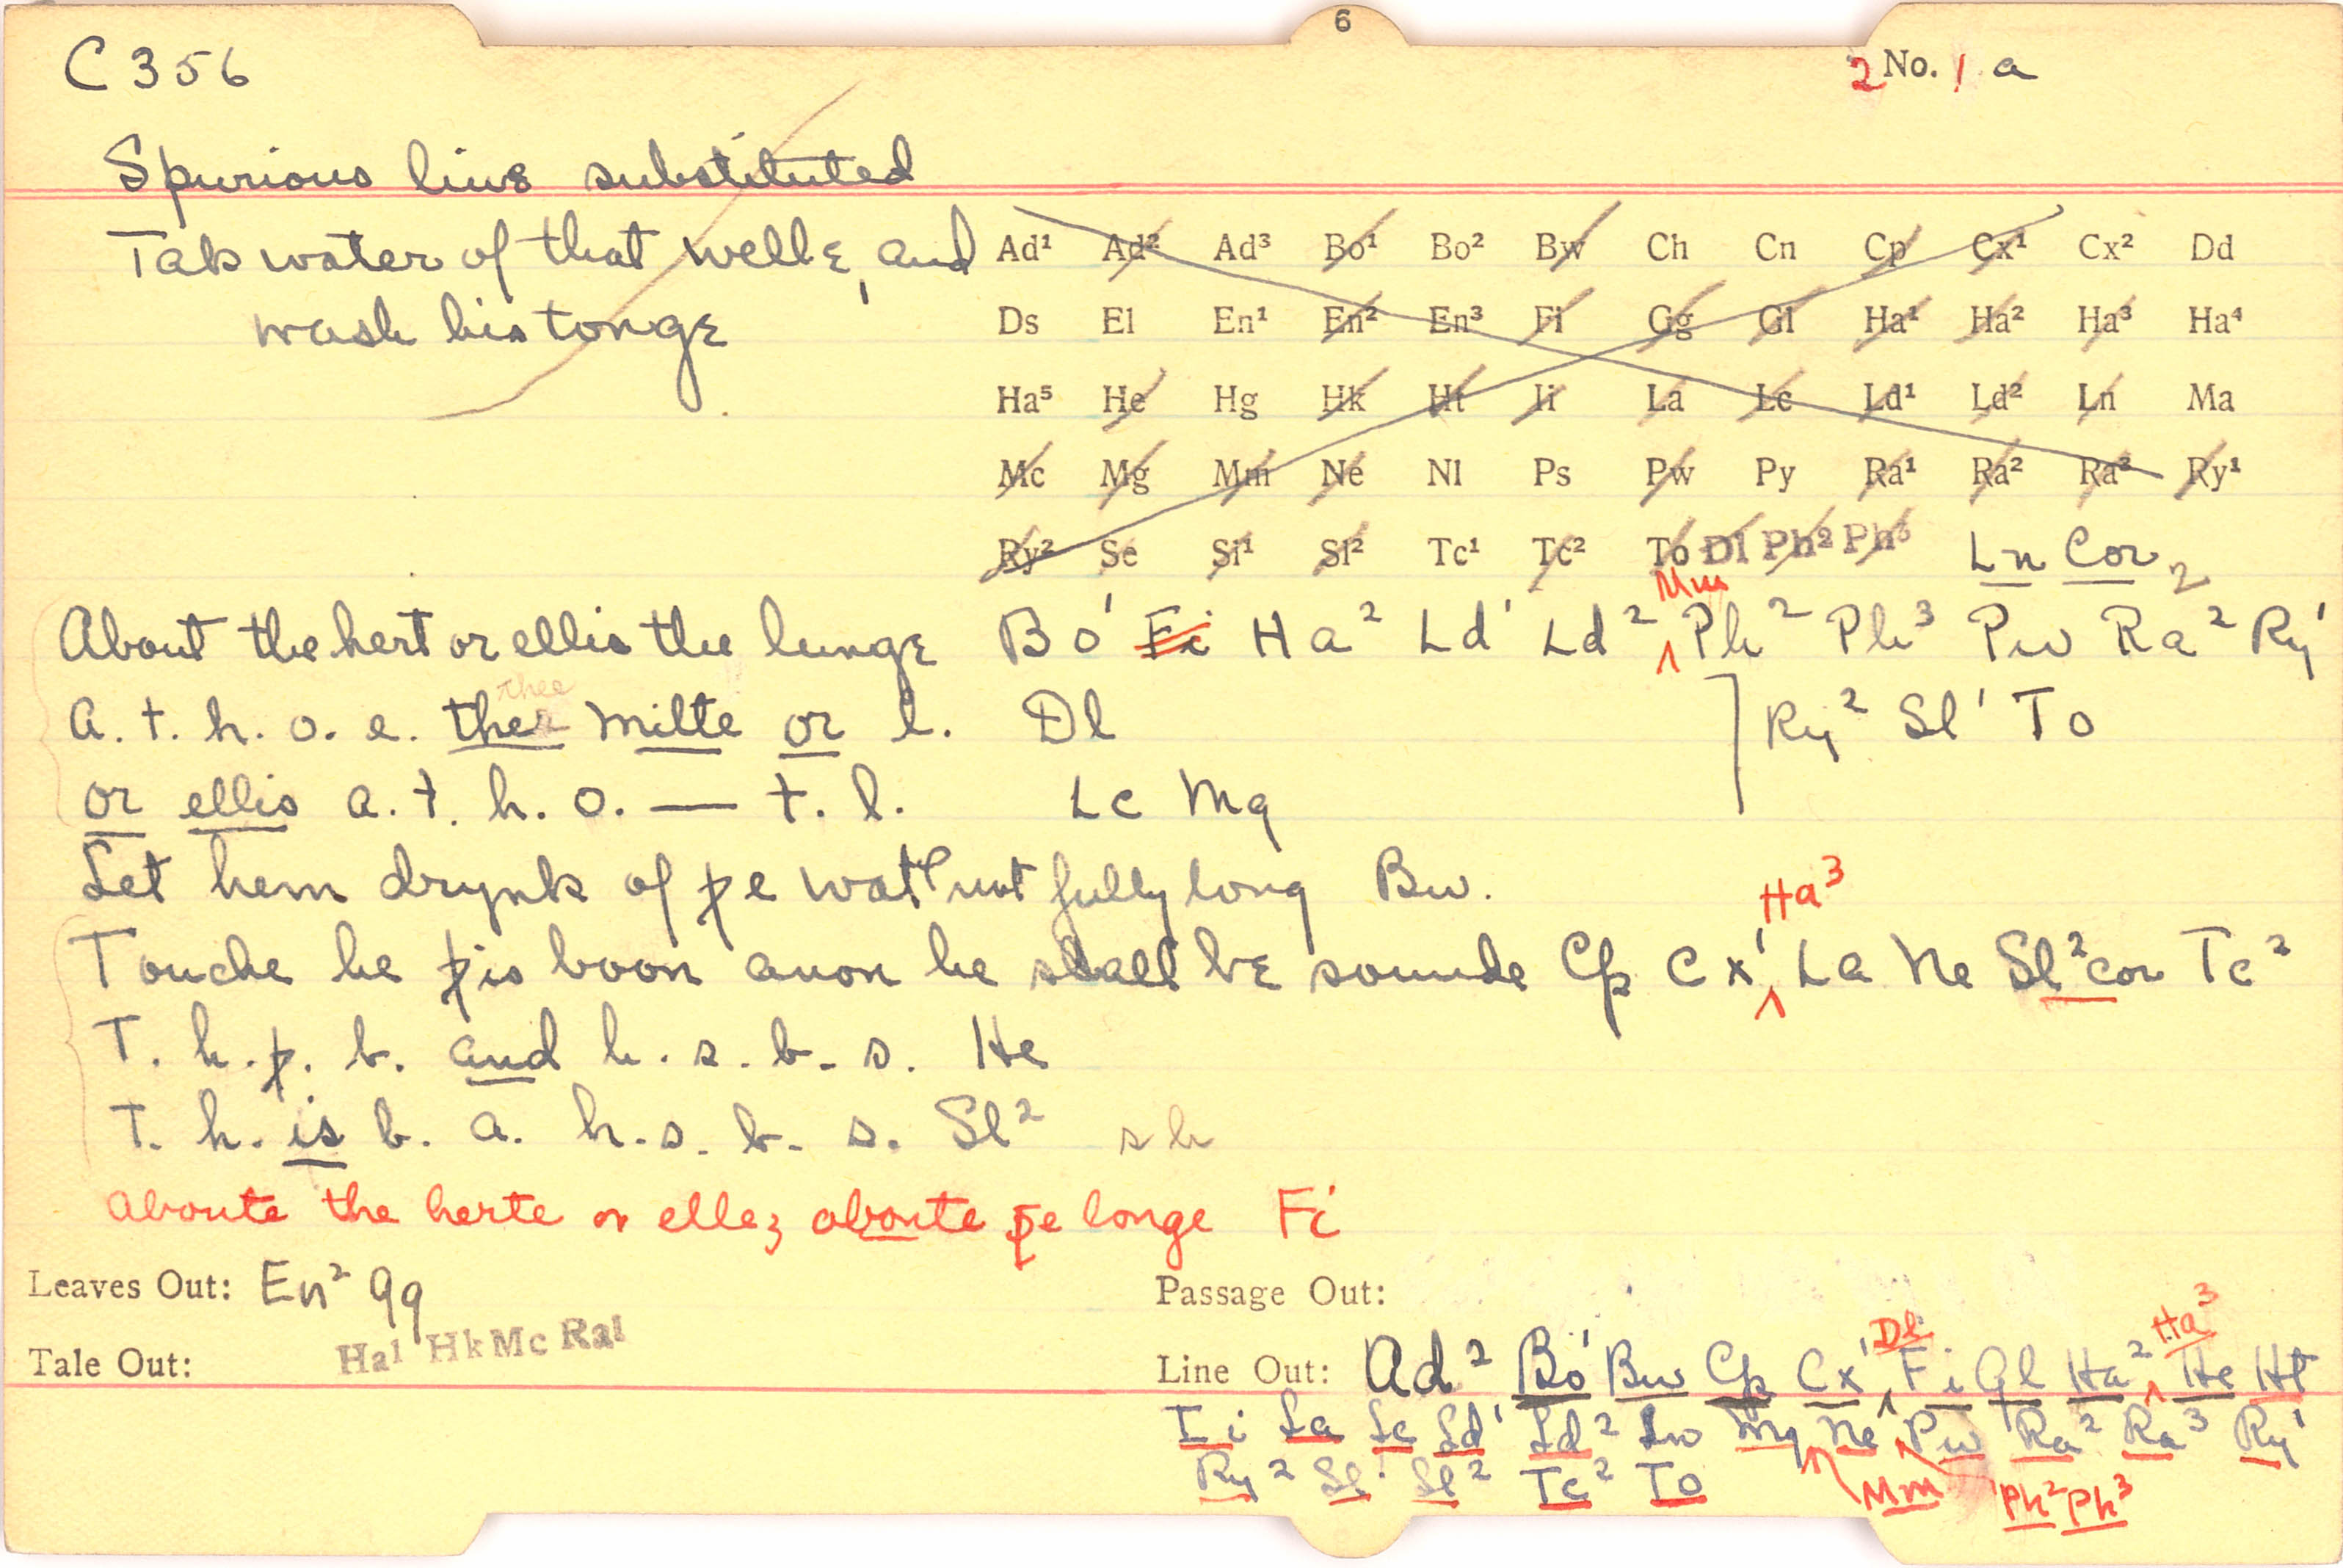 6
C 356
2 No. 1 a
Spurious line substituted
Tak water of that welle, and
wash his tonge
Ad¹ Ad² Ad³ Bo¹ Bo² Bw Ch Cn Cp Cx¹ Cx² Dd
Ds El En¹ En² En³ Fi Gg Gl Ha¹ Ha² Ha³ Ha⁴
Ha⁵ He Hg Hk Ht Ii La Lc Ld¹ Ld² Ln Ma
Mc Mg Mm Ne Nl Ps Pw Py Ra¹ Ra² Ra³ Ry¹
Ry² Se Sl¹ Sl² Tc¹ Tc² To Dl Ph² Ph³ Ln Cor 2
Mm
About the hert or ellis the lunge Bo¹ Fi Ha² Ld¹ Ld² Ph² Ph³ Pw Ra² Ry¹
thee
A. t. h. o. e. thee milte or l. Dl ] Ry² Sl¹ To
or ellis a. t. h. o. — t. l. Lc Mg
Let hem drynk of þe wat' not fully long Bw.
Ha³
Touche he þis boon anon he shall be sounde Cp Cx¹ La Ne Sl² cor Tc²
T. h. þ. b. and h. s. b. s. He
T. h. is b. a. h. s. b. s. Sl² sh
aboute the herte or elleȝ aboute þe longe Fi
Leaves Out: En² Gg
Passage Out:
Tale Out: Ha¹ Hk Mc Ra¹
Dl Ha³
Line Out: Ad² Bo¹ Bw Cp Cx¹ Fi Gl Ha² He Ht
Ii La Lc Ld¹ Ld² Ln Mg Ne Pw Ra² Ra³ Ry¹
Ry² Sl¹ Sl² Tc² To Mm Ph² Ph³